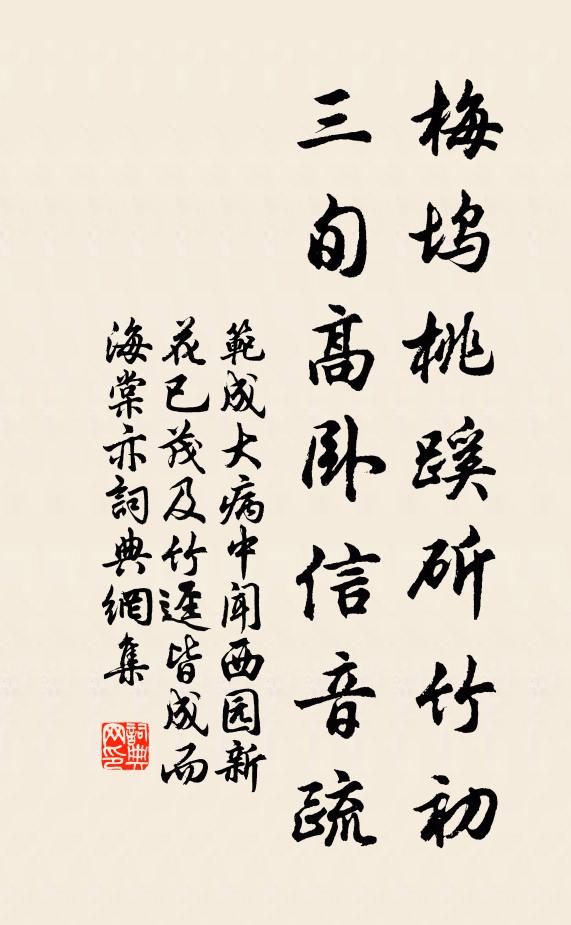 梅坞桃蹊斫竹初
三旬高卧信音疏
範成大病中闻西园新
花已茂及竹迳皆成而
海棠亦詞典網集
詞典网印